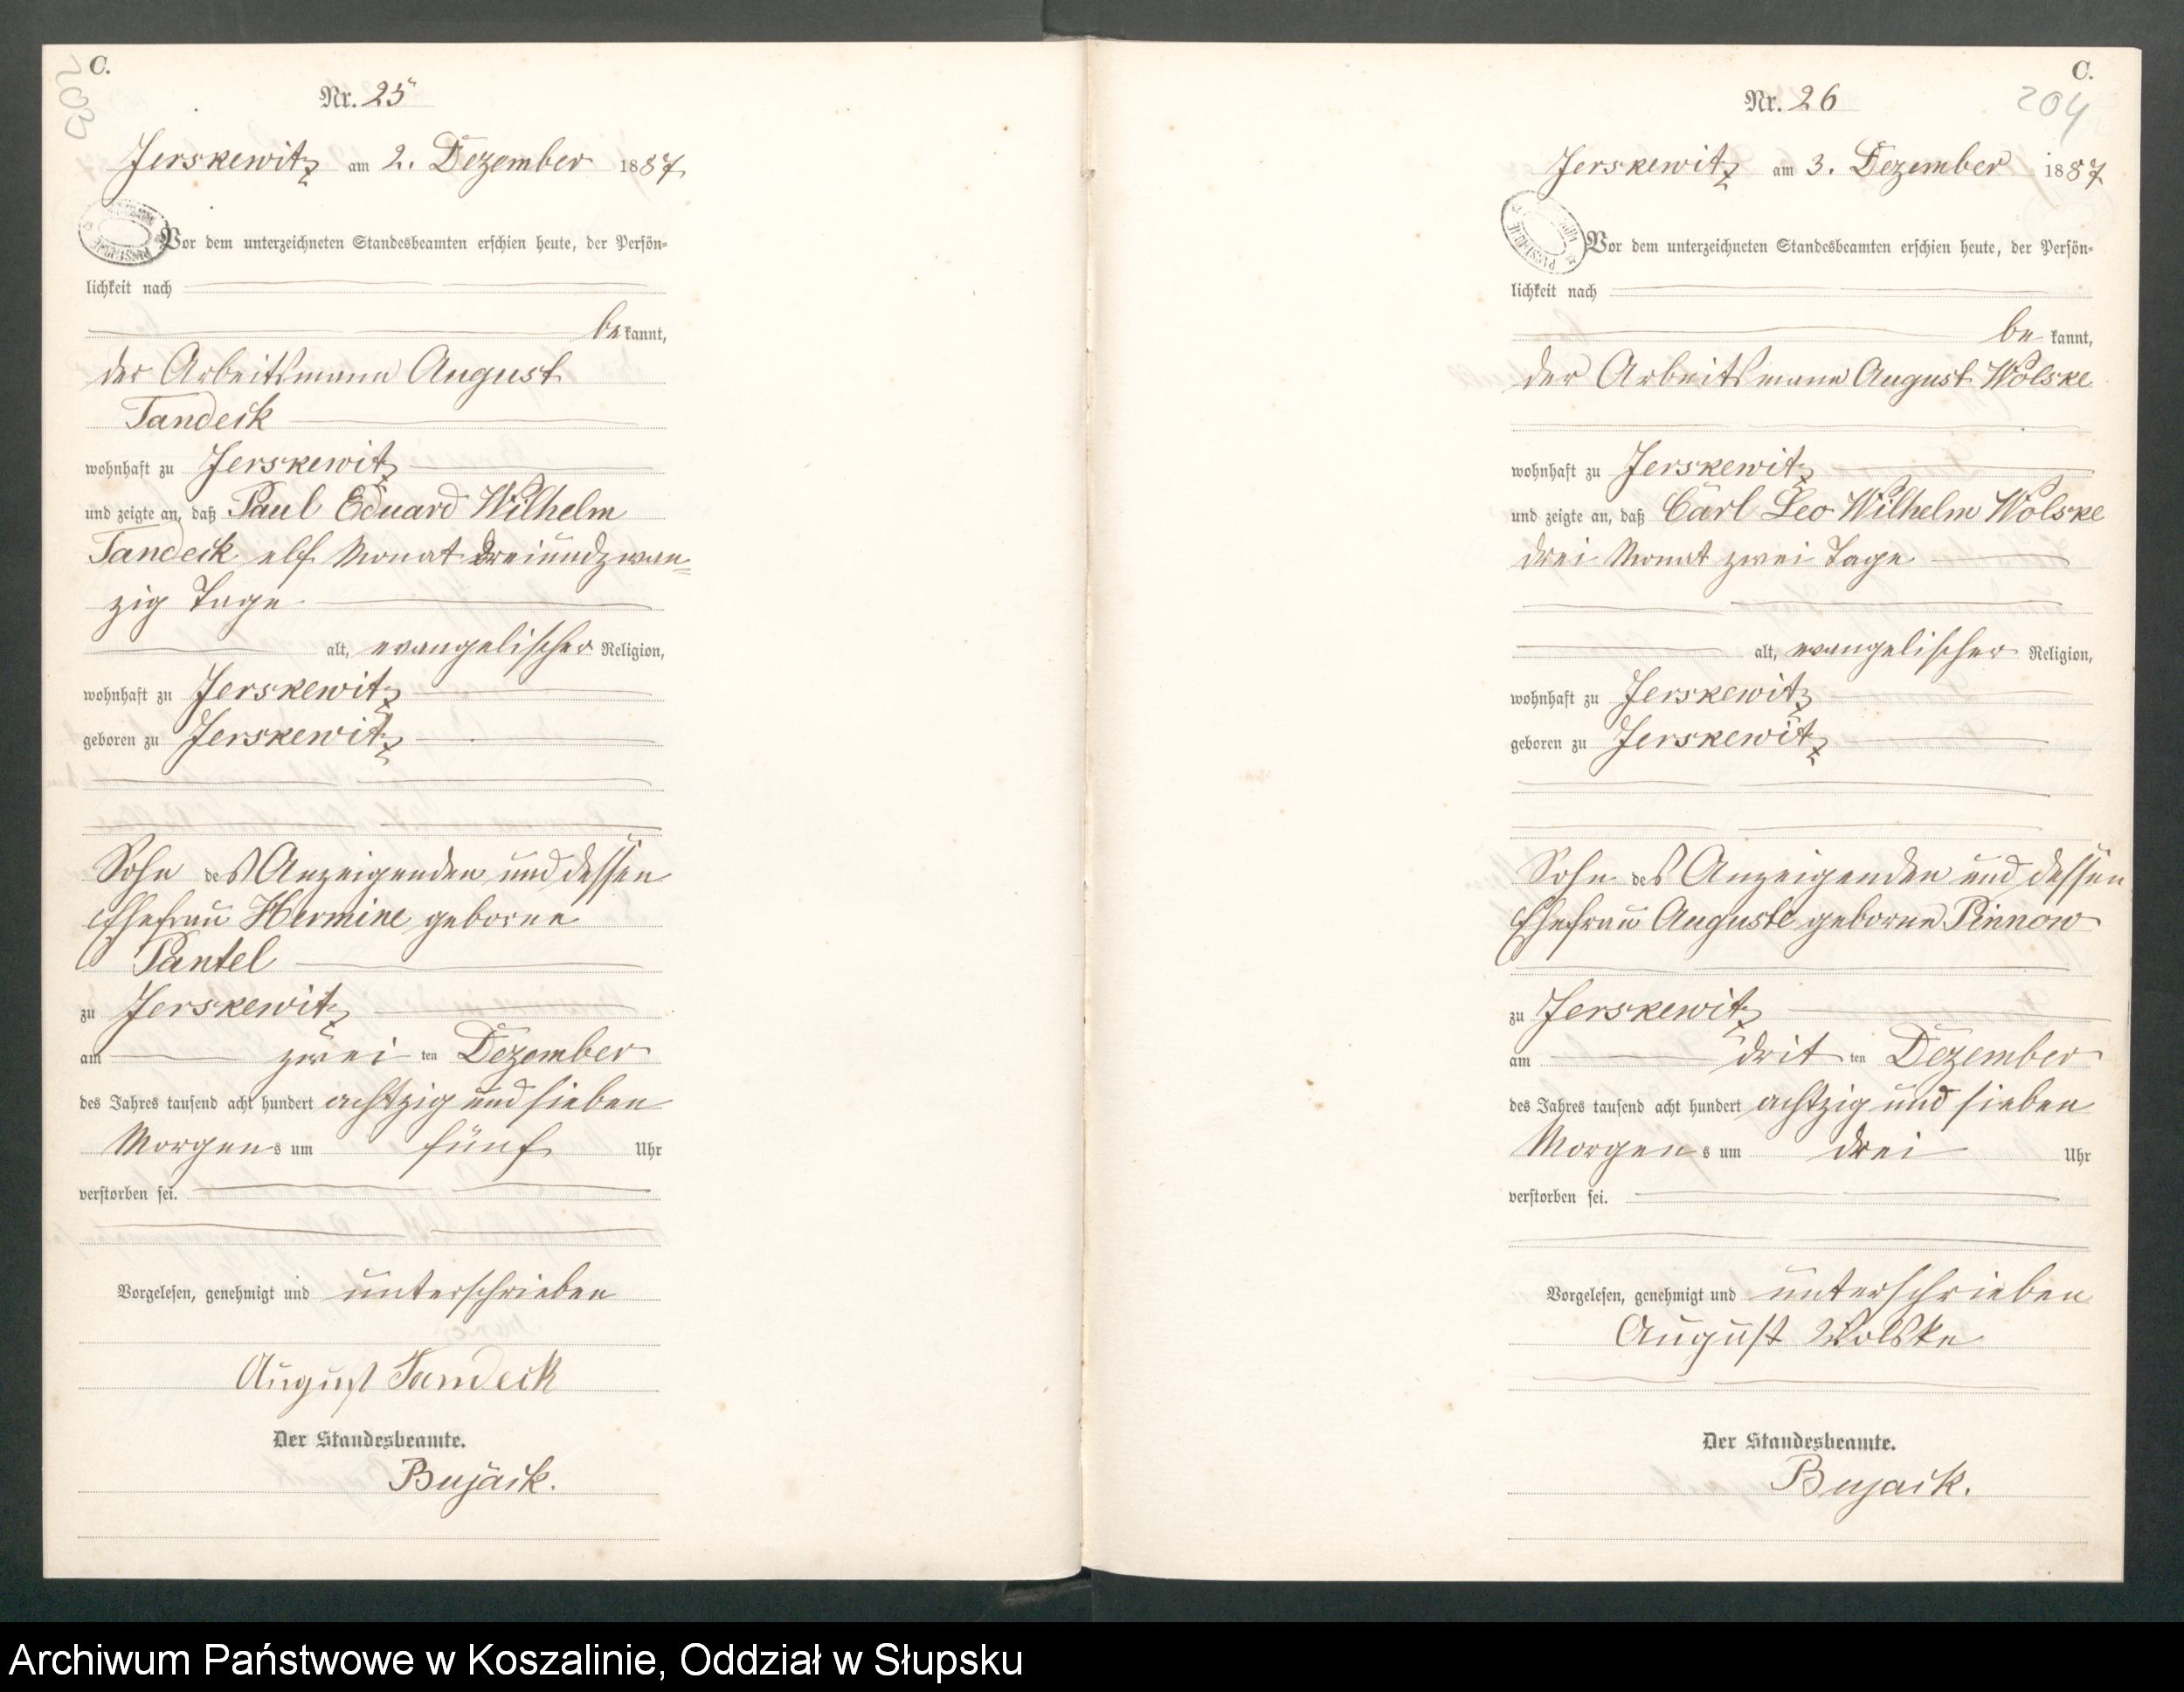 C.
203
Nr. 25
Jerskewitz am 2. Dezember 1887
Vor dem unterzeichneten Standesbeamten erschien heute, der Persön-
lichkeit nach
be kannt,
der Arbeitsmann August
Tandeck
wohnhaft zu Jerskewitz
und zeigte an, daß Paul Eduard Wilhelm
Tandeck elf Monat dreiundzwan-
zig Tage
alt, evangelischer Religion,
wohnhaft zu Jerskewitz
geboren zu Jerskewitz
Sohn des Anzeigenden und dessen
Ehefrau Hermine geborne
Pantel
zu Jerskewitz
am zwei ten Dezember
des Jahres tausend acht hundert achtzig und sieben
Morgens um fünf Uhr
verstorben sei.
Vorgelesen, genehmigt und unterschrieben
August Tandeck
Der Standesbeamte.
Bujack.
C.
204
Nr. 26
Jerskewitz am 3. Dezember 1887
Vor dem unterzeichneten Standesbeamten erschien heute, der Persön-
lichkeit nach
be kannt,
der Arbeitsmann August Wolske
wohnhaft zu Jerskewitz
und zeigte an, daß Carl Leo Wilhelm Wolske
drei Monat zwei Tage
alt, evangelischer Religion,
wohnhaft zu Jerskewitz
geboren zu Jerskewitz
Sohn des Anzeigenden und dessen
Ehefrau Auguste geborne Pinnow
zu Jerskewitz
am drit ten Dezember
des Jahres tausend acht hundert achtzig und sieben
Morgens um drei Uhr
verstorben sei.
Vorgelesen, genehmigt und unterschrieben
August Wolske
Der Standesbeamte.
Bujack.
Archiwum Państwowe w Koszalinie, Oddział w Słupsku